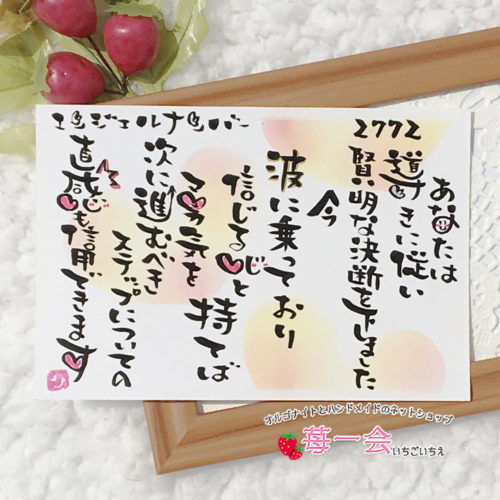 エンジェルナンバー
2772
あなたは
導きに従い
賢明な決断を下しました
今
波に乗っており
信じる心と
勇気を
持てば
次に進むべき
ステップについての
直感も信用できます
オルゴナイトとハンドメイドのネットショップ
苺一会 いちごいちえ